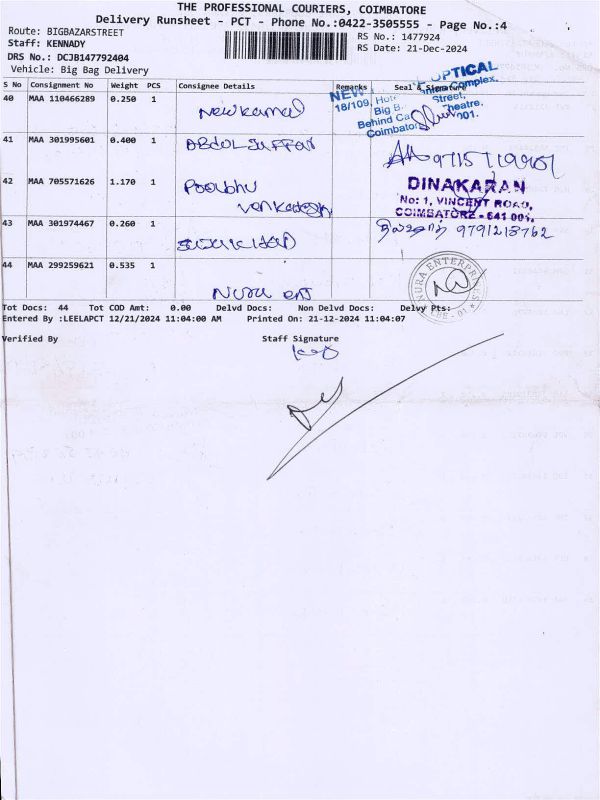 THE PROFESSIONAL COURIERS, COIMBATORE
Delivery Runsheet - PCT - Phone No.:0422-3505555 - Page No.:4
Route: BIGBAZARSTREET
RS No.: 1477924
Staff: KENNADY
RS Date: 21-Dec-2024
DRS No.: DCJB147792404
Vehicle: Big Bag Delivery
S No Consignment No Weight PCS Consignee Details Remarks Seal & Signature
40 MAA 110466289 0.250 1 New kamal
NEW OPTICAL
18/109, Complex,
Big B Street,
Behind Ca heatre,
Coimbator 001.
41 MAA 301995601 0.400 1 ABDUL
42 MAA 705571626 1.170 1 Poorbhu
venkadesh
DINAKARAN
No: 1, VINCENT ROAD,
COIMBATORE - 641 001.
43 MAA 301974467 0.260 1
9791213762
44 MAA 299259621 0.535 1 NURA ent
NURA ENTERPRISES
CBE - 01
Tot Docs: 44 Tot COD Amt: 0.00 Delvd Docs: Non Delvd Docs: Delvy Pts:
Entered By :LEELAPCT 12/21/2024 11:04:00 AM Printed On: 21-12-2024 11:04:07
Verified By Staff Signature